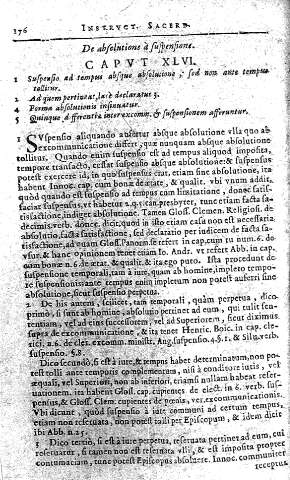 176 INSTRVCT. SACERD.
De absolutione à suspensione.
CAPVT XLVI.
1 Suspensio ad tempus absque absolutione, sed non ante tempus
tollitur.
2 Ad quem pertineat, latè declaratur 3.
4 Forma absolutionis insinuatur.
5 Quinque differentiæ inter excomm. & suspensionem afferuntur.
1 SVspensio aliquando aufertur absque absolutione vlla quo ab
excommunicatione differt, quæ nunquam absque absolutione
tollitur. Quando enim suspensio est ad tempus aliquod imposita,
tempore transacto, cessat suspensio absque absolutione: & suspensus
potest exercere id, in quo suspensus erat, etiam sine absolutione, ita
habet Innoc. cap. cum bonæ de ætate, & qualit. vbi vnum addit,
quòd quando est suspensio ad tempus cum limitatione, donec satis-
faciat suspensus, vt habetur presbyter, tunc etiam facta satis-
factione, indiget absolutione. Tamen Gloss. Clemen. Religiosi. de
decimis. verb. donec. dicit, quod in isto etiam casu non est necessaria
absolutio, facta satisfactione, sed declaratio per iudicem de facta sa-
tisfactione, ad quam Gloss. Panorm. se refert in cap. cum
& hanc opinionem tenet etiam Io. Andr. vt refert Abb. in cap.
cum bonæ n. 6. de ætat. & qualit. & itaego puto. Ista procedunt de
suspensione temporali, tam à iure, quam ab homine, impleto tempo-
re suspensionis ante tempus enim impletum non potest auferri sine
absolutione, sicut suspensio perpetua.
2 De his autem, scilicet, tam temporali, quàm perpetua, dico
primo, si sunt ab homine, absolutio pertinet ad eum, qui tulit sen-
tentiam, vel ad eius successorem, vel ad Superiorem, sicut diximus
supra de excommunicatione, & ita tenet Henric. Boic. in cap. cle-
rici. n. 6. de cler. excomm. ministr. Ang. suspensio. 4. §. 1. & Silu. verb.
suspensio. §. 8.
Dico secundò, si est à iure, & tempus habet determinatum, non po-
test tolli ante temporis complementum, nisi à conditore iuris, vel
æquali, vel Superiori, non ab inferiori, etiamsi nullam habeat reser-
uationem, ita habent Gloss. cap. cupientes de elect. in 6. verb. sus-
pensos, & Gloss. Clem. cupientes de pœnis, ver. excommunicationis.
Vbi dicunt, quòd suspensio à iure communi ad certum tempus,
etiam non reseruata, non potest tolli per Episcopum, & idem dicit
ibi Abb. n. 25.
3 Dico tertiò, si est à iure perpetua, reseruata pertinet ad eum, cui
reseruatur, si tamen non est reseruata vlli, & est imposita propter
contumaciam, tunc potest Episcopus absoluere. Innoc. communiter
receptus